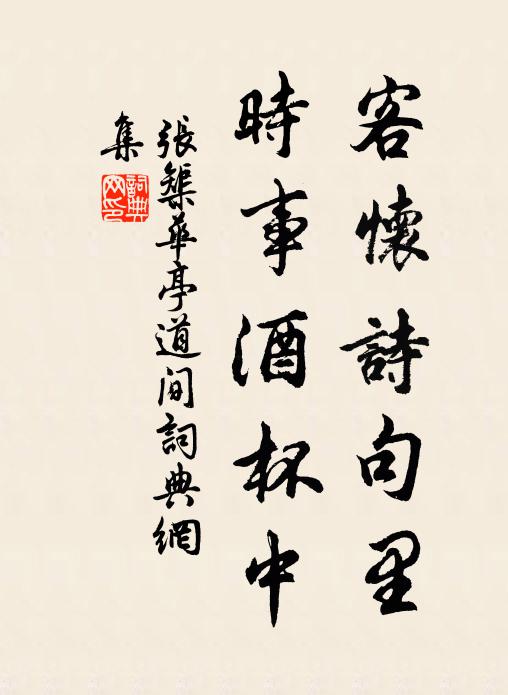 客懷詩句里
時事酒杯中
張榘華亭道間詞典網
集
詞典網印